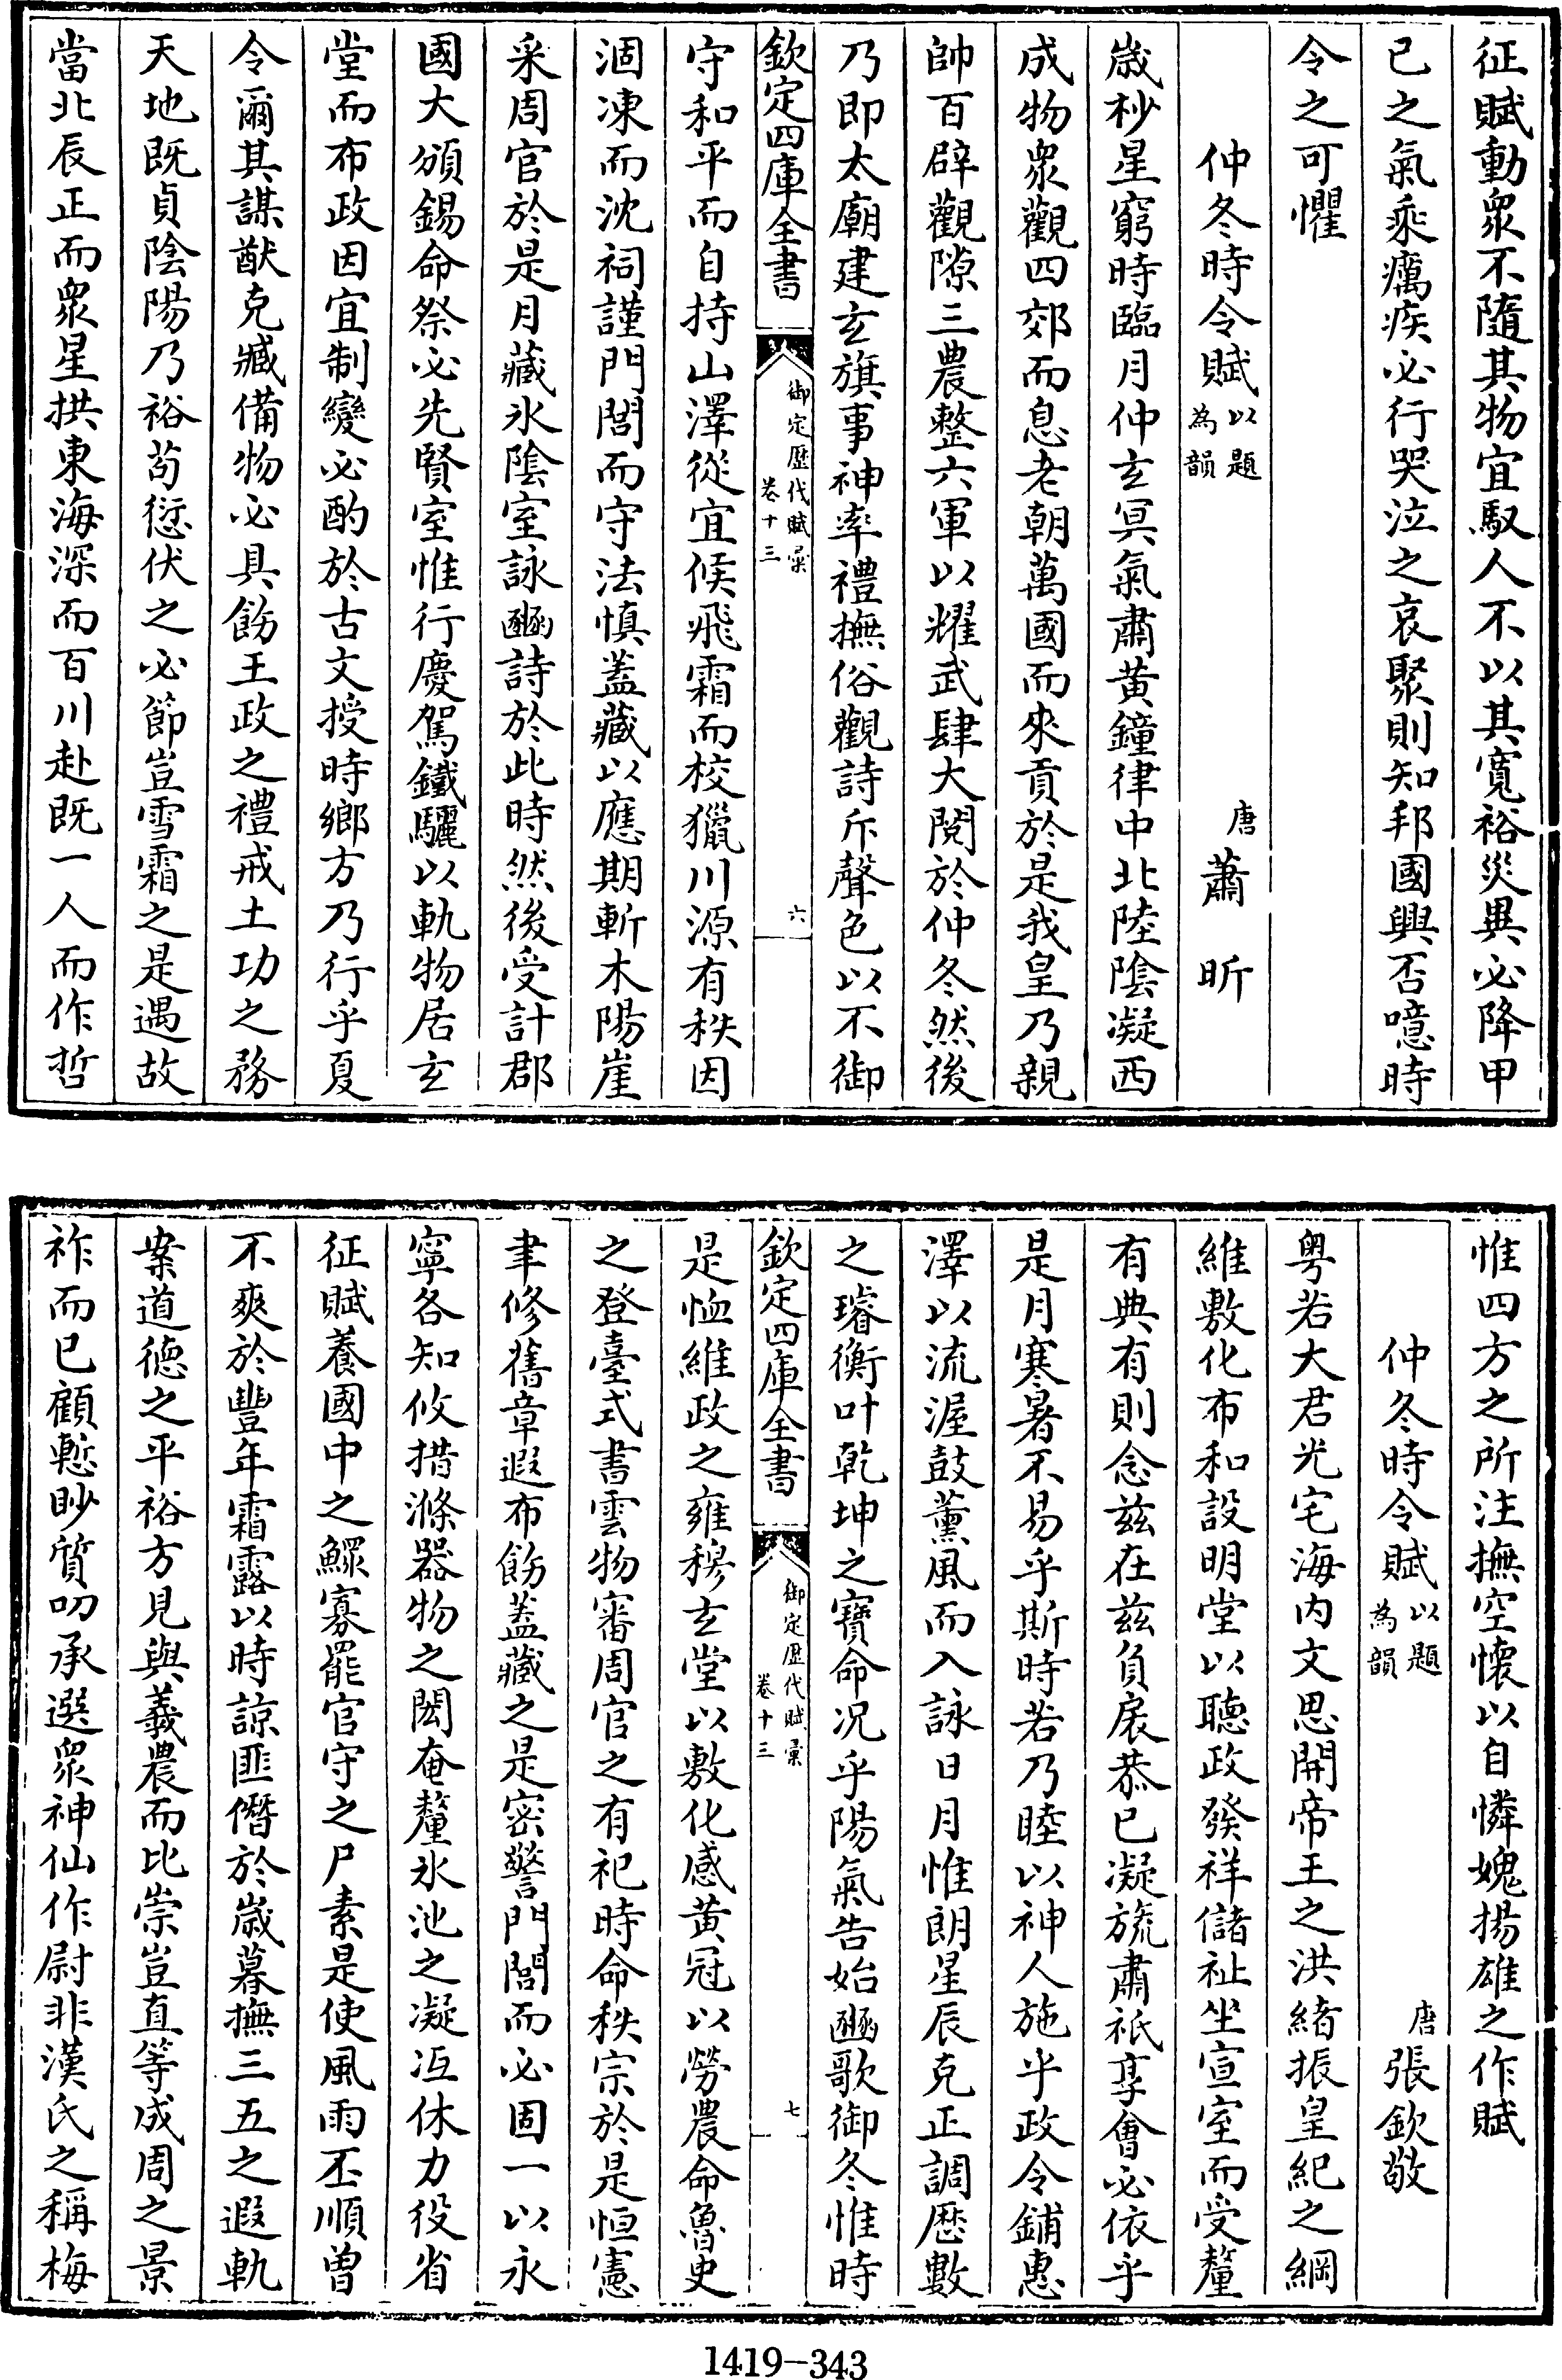 征賦動衆不隨其物宜馭人不以其寛裕災異必降甲
已之氣乘癘疾必行哭泣之哀聚則知邦國興否噫時
令之可懼
仲冬時令賦以題為韻 唐蕭昕
歲杪星窮時臨月仲玄冥氣肅黃鐘律中北陸陰凝西
成物衆觀四郊而息老朝萬國而來貢於是我皇乃親
帥百辟觀隙三農整六軍以耀武肆大閱於仲冬然後
乃即太廟建玄旗事神率禮撫俗觀詩斥聲色以不御
欽定四庫全書 御定歷代賦彙 卷十三 六
守和平而自持山澤從宜候飛霜而校獵川源有秩因
涸凍而沈祠謹門閭而守法慎蓋藏以應期斬木陽崖
采周官於是月藏氷陰室詠豳詩於此時然後受計郡
國大頒錫命祭必先賢室惟行慶駕鐵驪以軌物居玄
堂而布政因宜制變必酌於古文授時鄉方乃行乎夏
令爾其謀猷克臧備物必具飭王政之禮戒土功之務
天地既貞陰陽乃裕苟愆伏之必節豈雪霜之是遇故
當北辰正而衆星拱東海深而百川赴既一人而作哲
惟四方之所注撫空懷以自憐媿揚雄之作賦
仲冬時令賦以題為韻 唐張欽敬
粤若大君光宅海内文思開帝王之洪緒振皇紀之綱
維敷化布和設明堂以聽政發祥儲祉坐宣室而受釐
有典有則念兹在兹負扆恭已凝旒肅祇享會必依乎
是月寒暑不易乎斯時若乃睦以神人施乎政令鋪惠
澤以流渥鼓薰風而入詠日月惟朗星辰克正調歷數
之璿衡叶乾坤之寶命况乎陽氣告始豳歌御冬惟時
欽定四庫全書 御定歷代賦彙 卷十三 七
是恤維政之雍穆玄堂以敷化感黄冠以勞農命魯史
之登臺式書雲物審周官之有祀時命秩宗於是恒憲
聿修舊章遐布飭蓋藏之是密警門閭而必固一以永
寧各知攸措滌器物之閎奄釐氷池之凝冱休力役省
征賦養國中之鰥寡罷官守之尸素是使風雨丕順曾
不爽於豐年霜露以時諒匪僭於歲暮撫三五之遐軌
案道德之平裕方見與羲農而比崇豈直等成周之景
祚而已顧慙眇質叨承選衆神仙作尉非漢氏之稱梅
1419-343